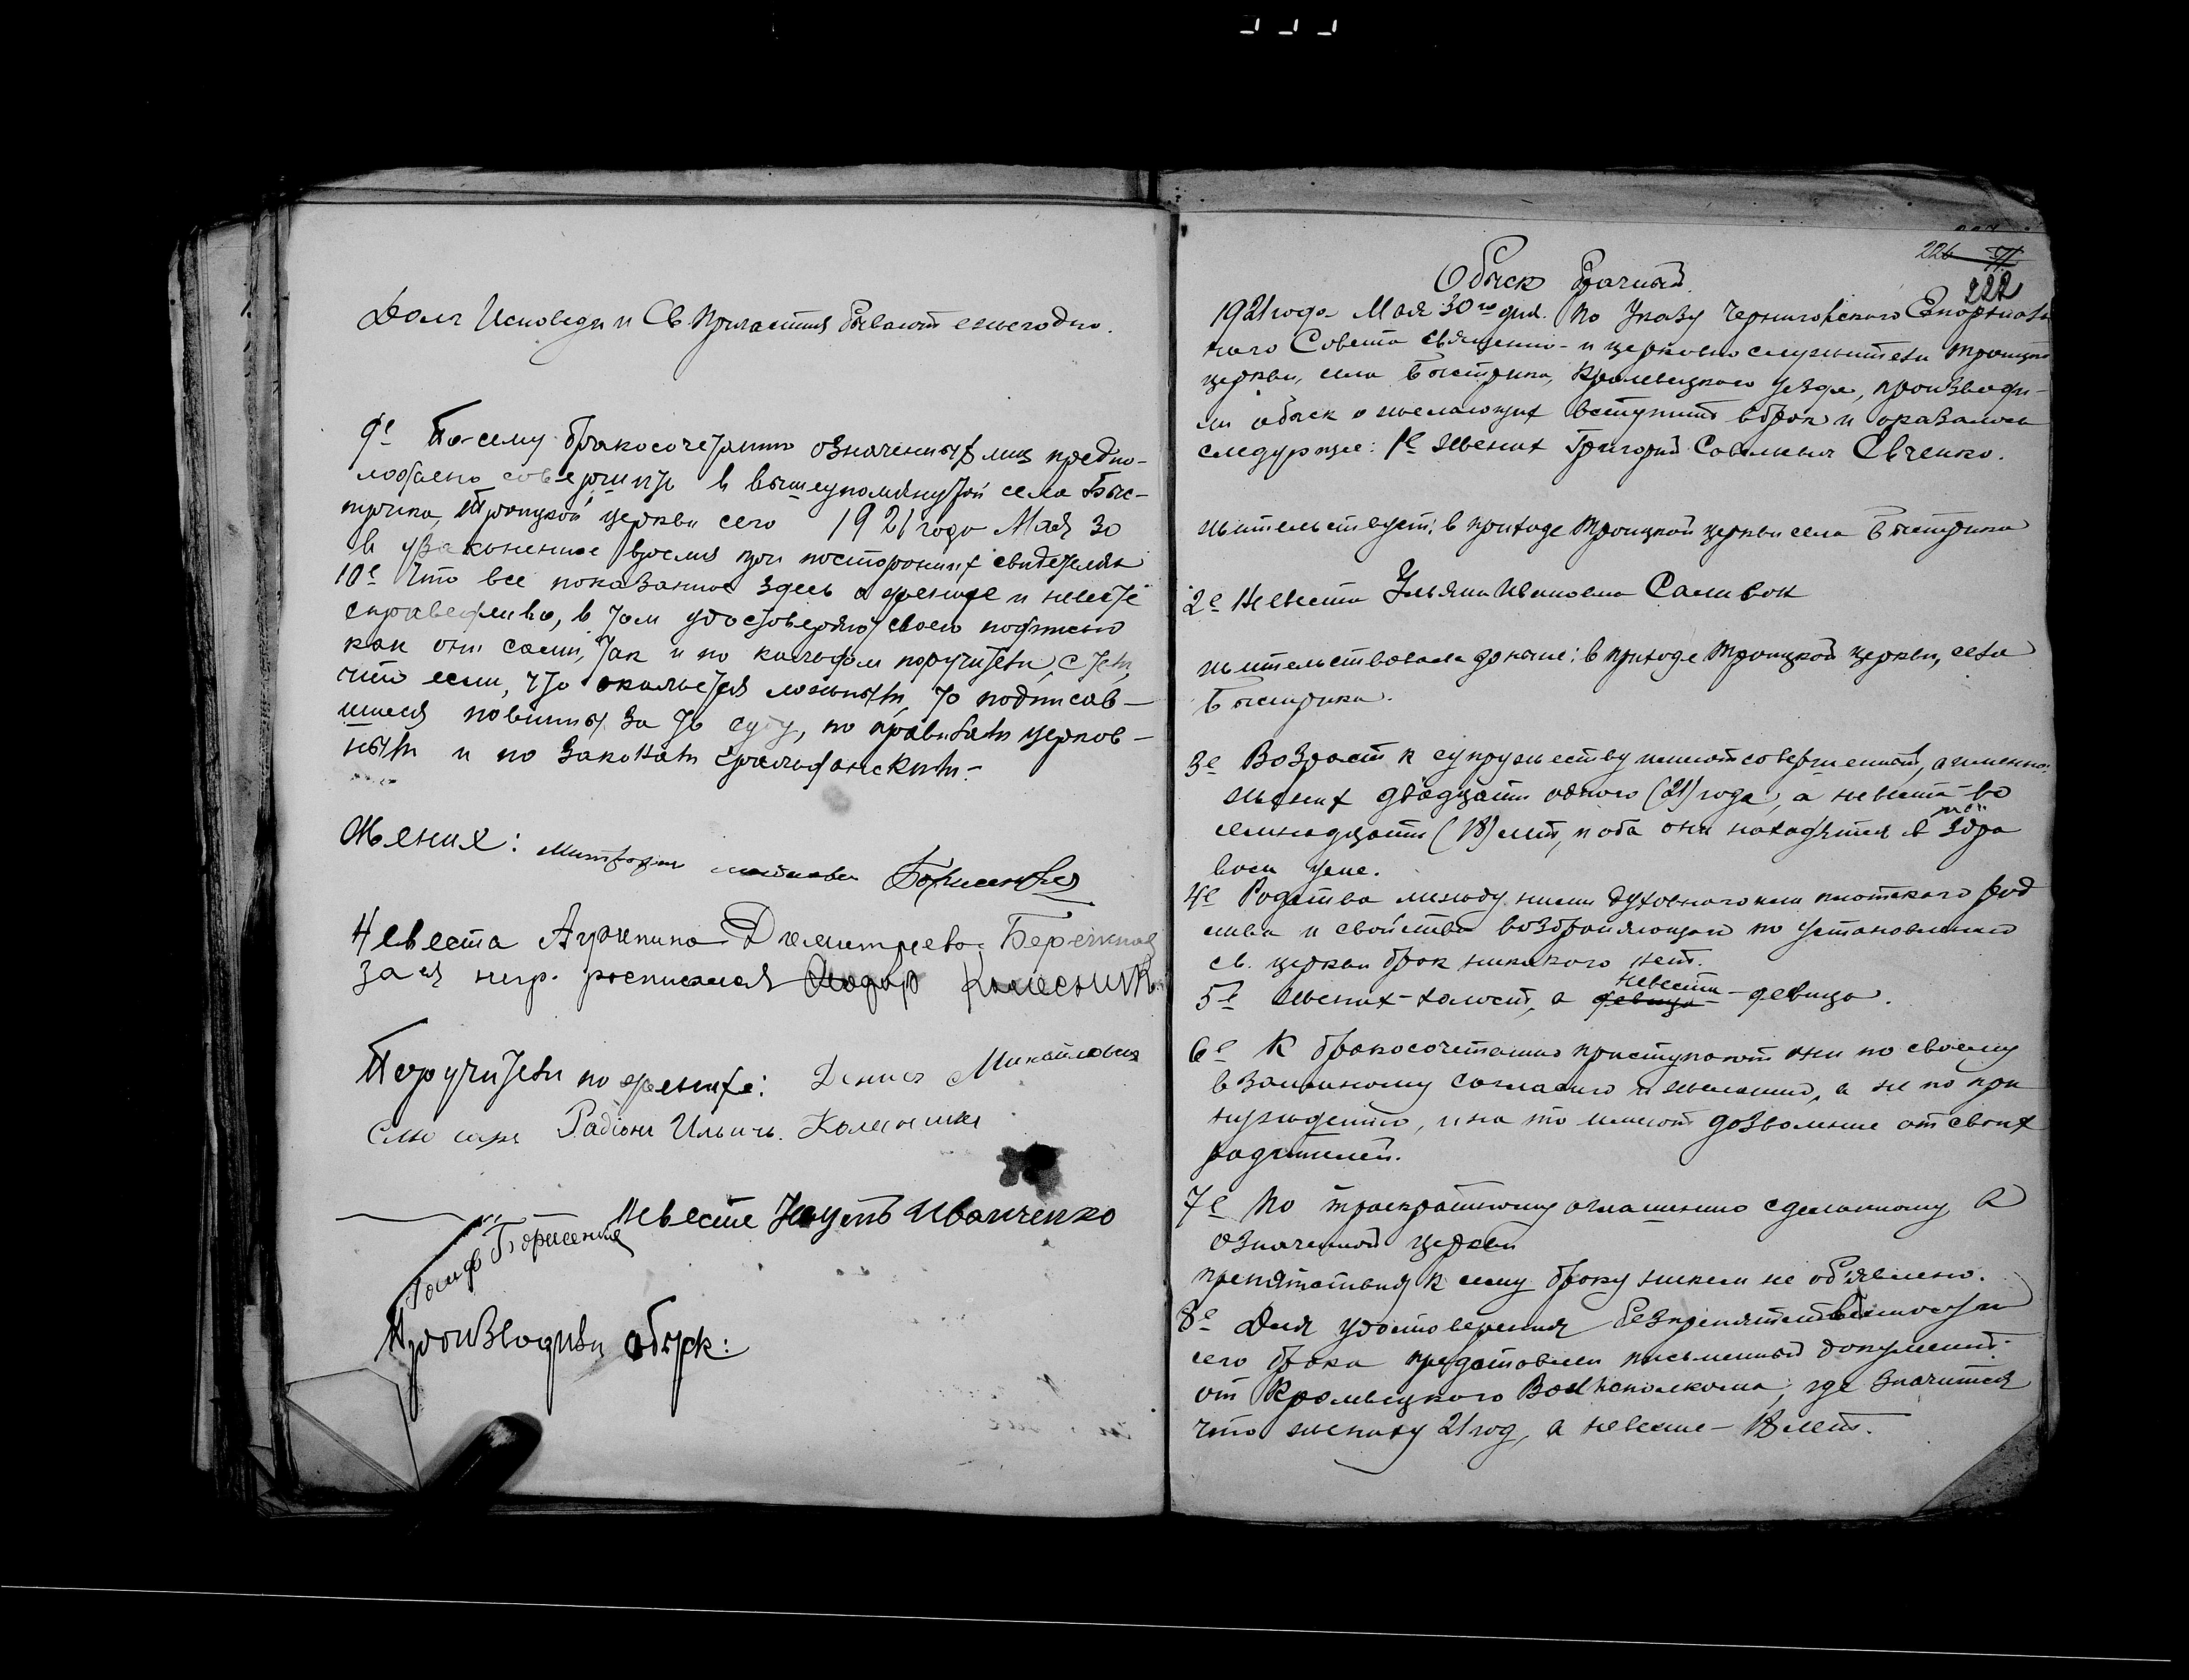 Долг Исповеди и Св. Причастия бывают ежегодно.
9е По-сему бракосочетанию означенных лиц предпо-
ложено совершить в вышеупомянутой села Быс-
трика, Троицкой церкви сего 1921 года Мая 30
в узаконенное время при посторонних свидетелях
10е Что все показанное здесь о женихе и невесте
справедливо, в том удостоверяют своею подписью
как они сами, так и по каждом поручители, с тем,
что если, что окажется ложным, то подписав-
шиеся повинны за то суду, по правилам церков-
ным и по законам гражданским.-
Жених: Митрофан Борисенко
Невеста Агрипина Дмеитриева
за ея негр. росписался Колесник
Поручители по женихе: Денис Михайлович
Радіон Ильичь Колесник
Невесте Иванченко
Борисенко
Производили обыск:
226
222
Обыск Брачный.
1921 года Мая 30го дня. По Указу Черниговского Епархиаль
ного Совета священно- и церковно служители Троицкой
церкви, села Быстрика, Кролевецкого уезда, производи-
ли обыск о желающих вступить в брак и оказалось
следующее: 1е Жених Григорий Савельев Євченко.
жительствует: в приходе Троицкой церкви села Быстрика
2е Невеста Ульяна Ивановна Саливон
жительствовала доныне: в приходе Троицкой церкви, села
Быстрика.
3е Возраст к супружеству имеют совершенный, а именно:
жених двадцати одного (21) года, а невеста во
семнадцати (18) лет, и оба они находятся в здра
вом уме.
4е Родства между ними духовного или плотского род
ства и свойства возбраняющаго по установлению
св. церкви брак никакого нет.
невеста
5е Жених - холост, а девица - девица.
6е К бракосочетанию приступают они по своему
взаимному согласию и желанию, а не по при
нуждению, и на то имеют дозволение от своих
родителей.
7е По троекратному оглашению сделанному в
означенной церкви
препятствия к сему браку никем не объявлено.
8е Для удостоверения безпрепятственности
сего брака представлен письменный документ
от Кролевецкого Волисполкома, где значится
что жениху 21 год, а невесте - 18 лет.